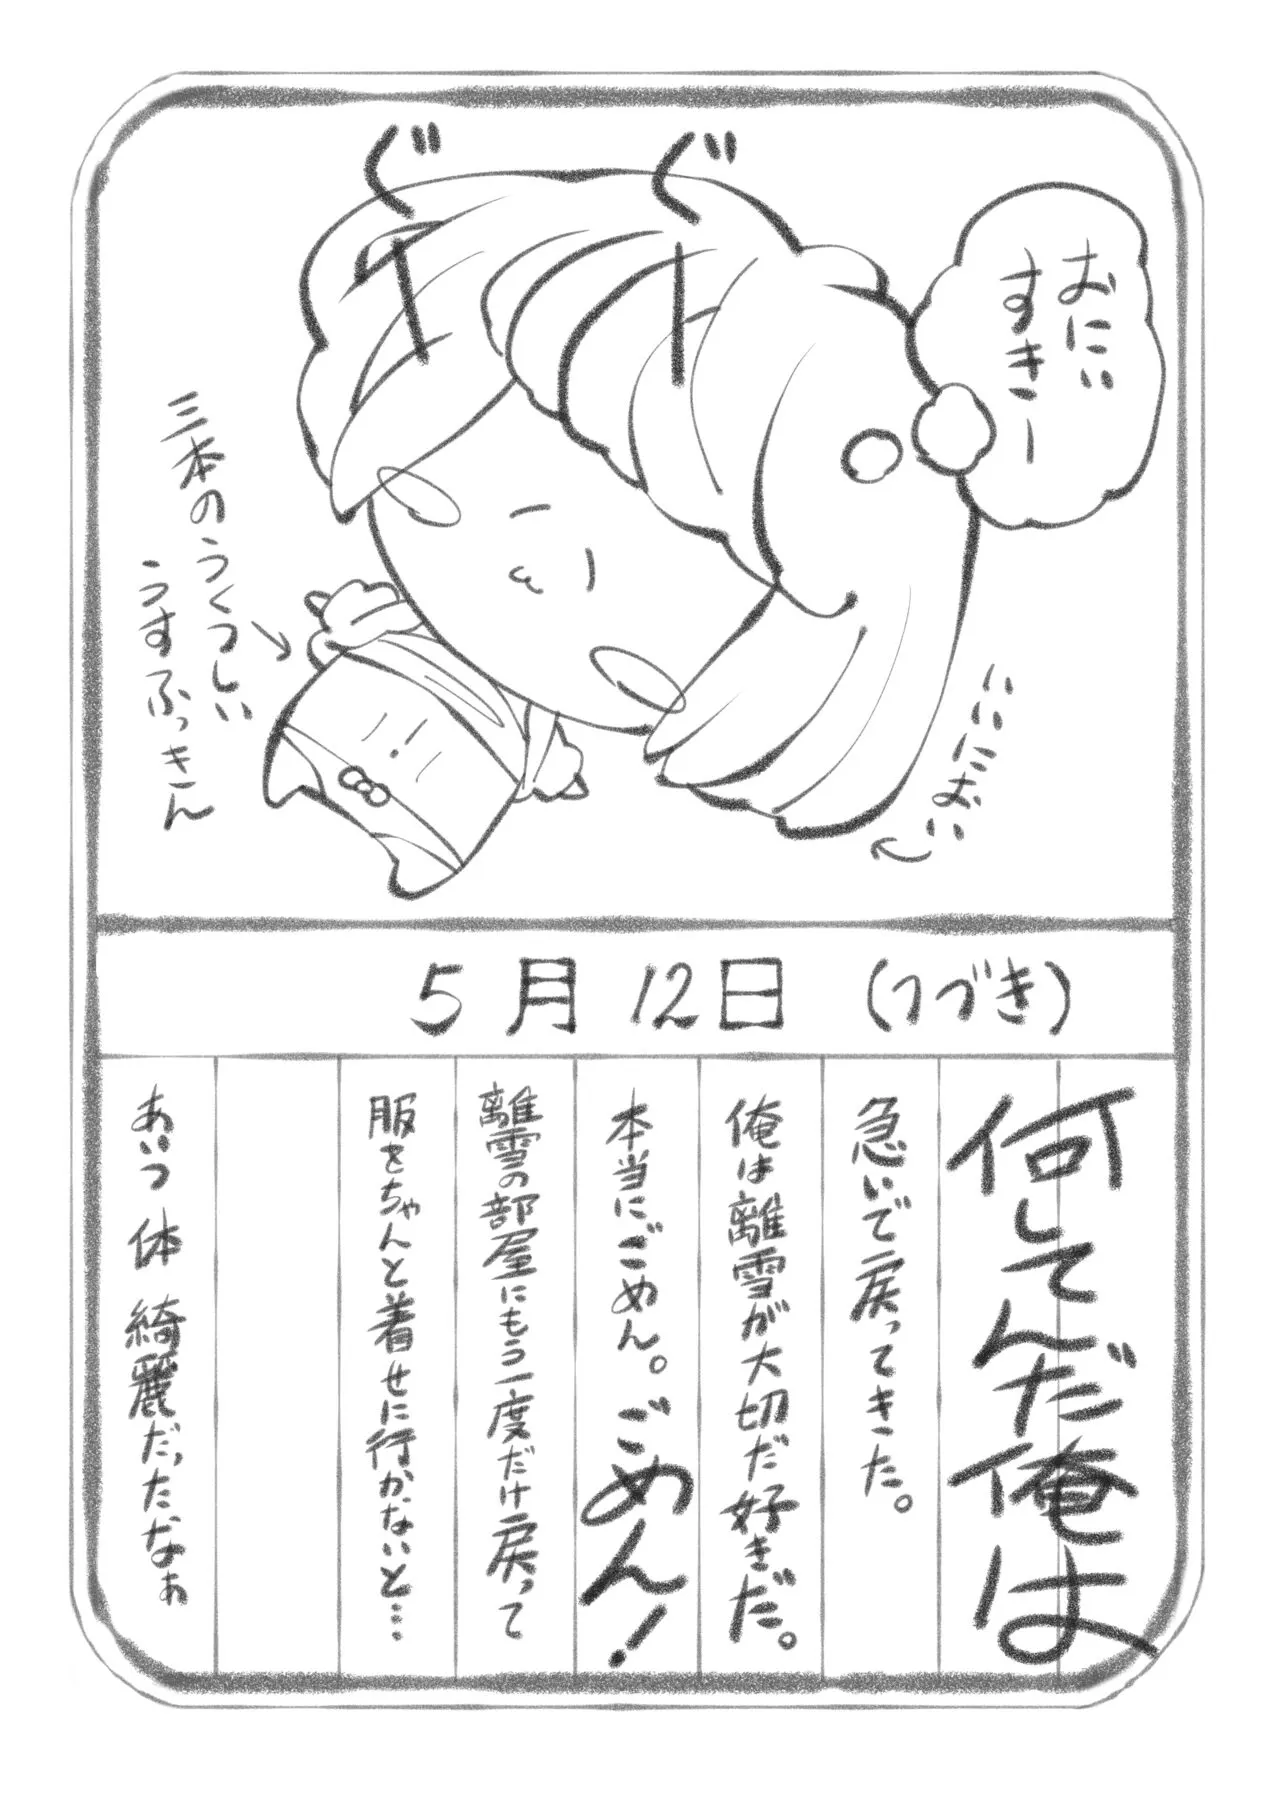 おにい
すきー
ぐー
ぐー
いいにおい
三本のうくつしい
うすふっきん
5月12日(つづき)
何してんだ俺は
急いで戻ってきた。
俺は離雪が大切だ好きだ。
本当にごめん。ごめん!
離雪の部屋にもう一度だけ戻って
服をちゃんと着せに行かないと…
あいつ体綺麗だったなぁ